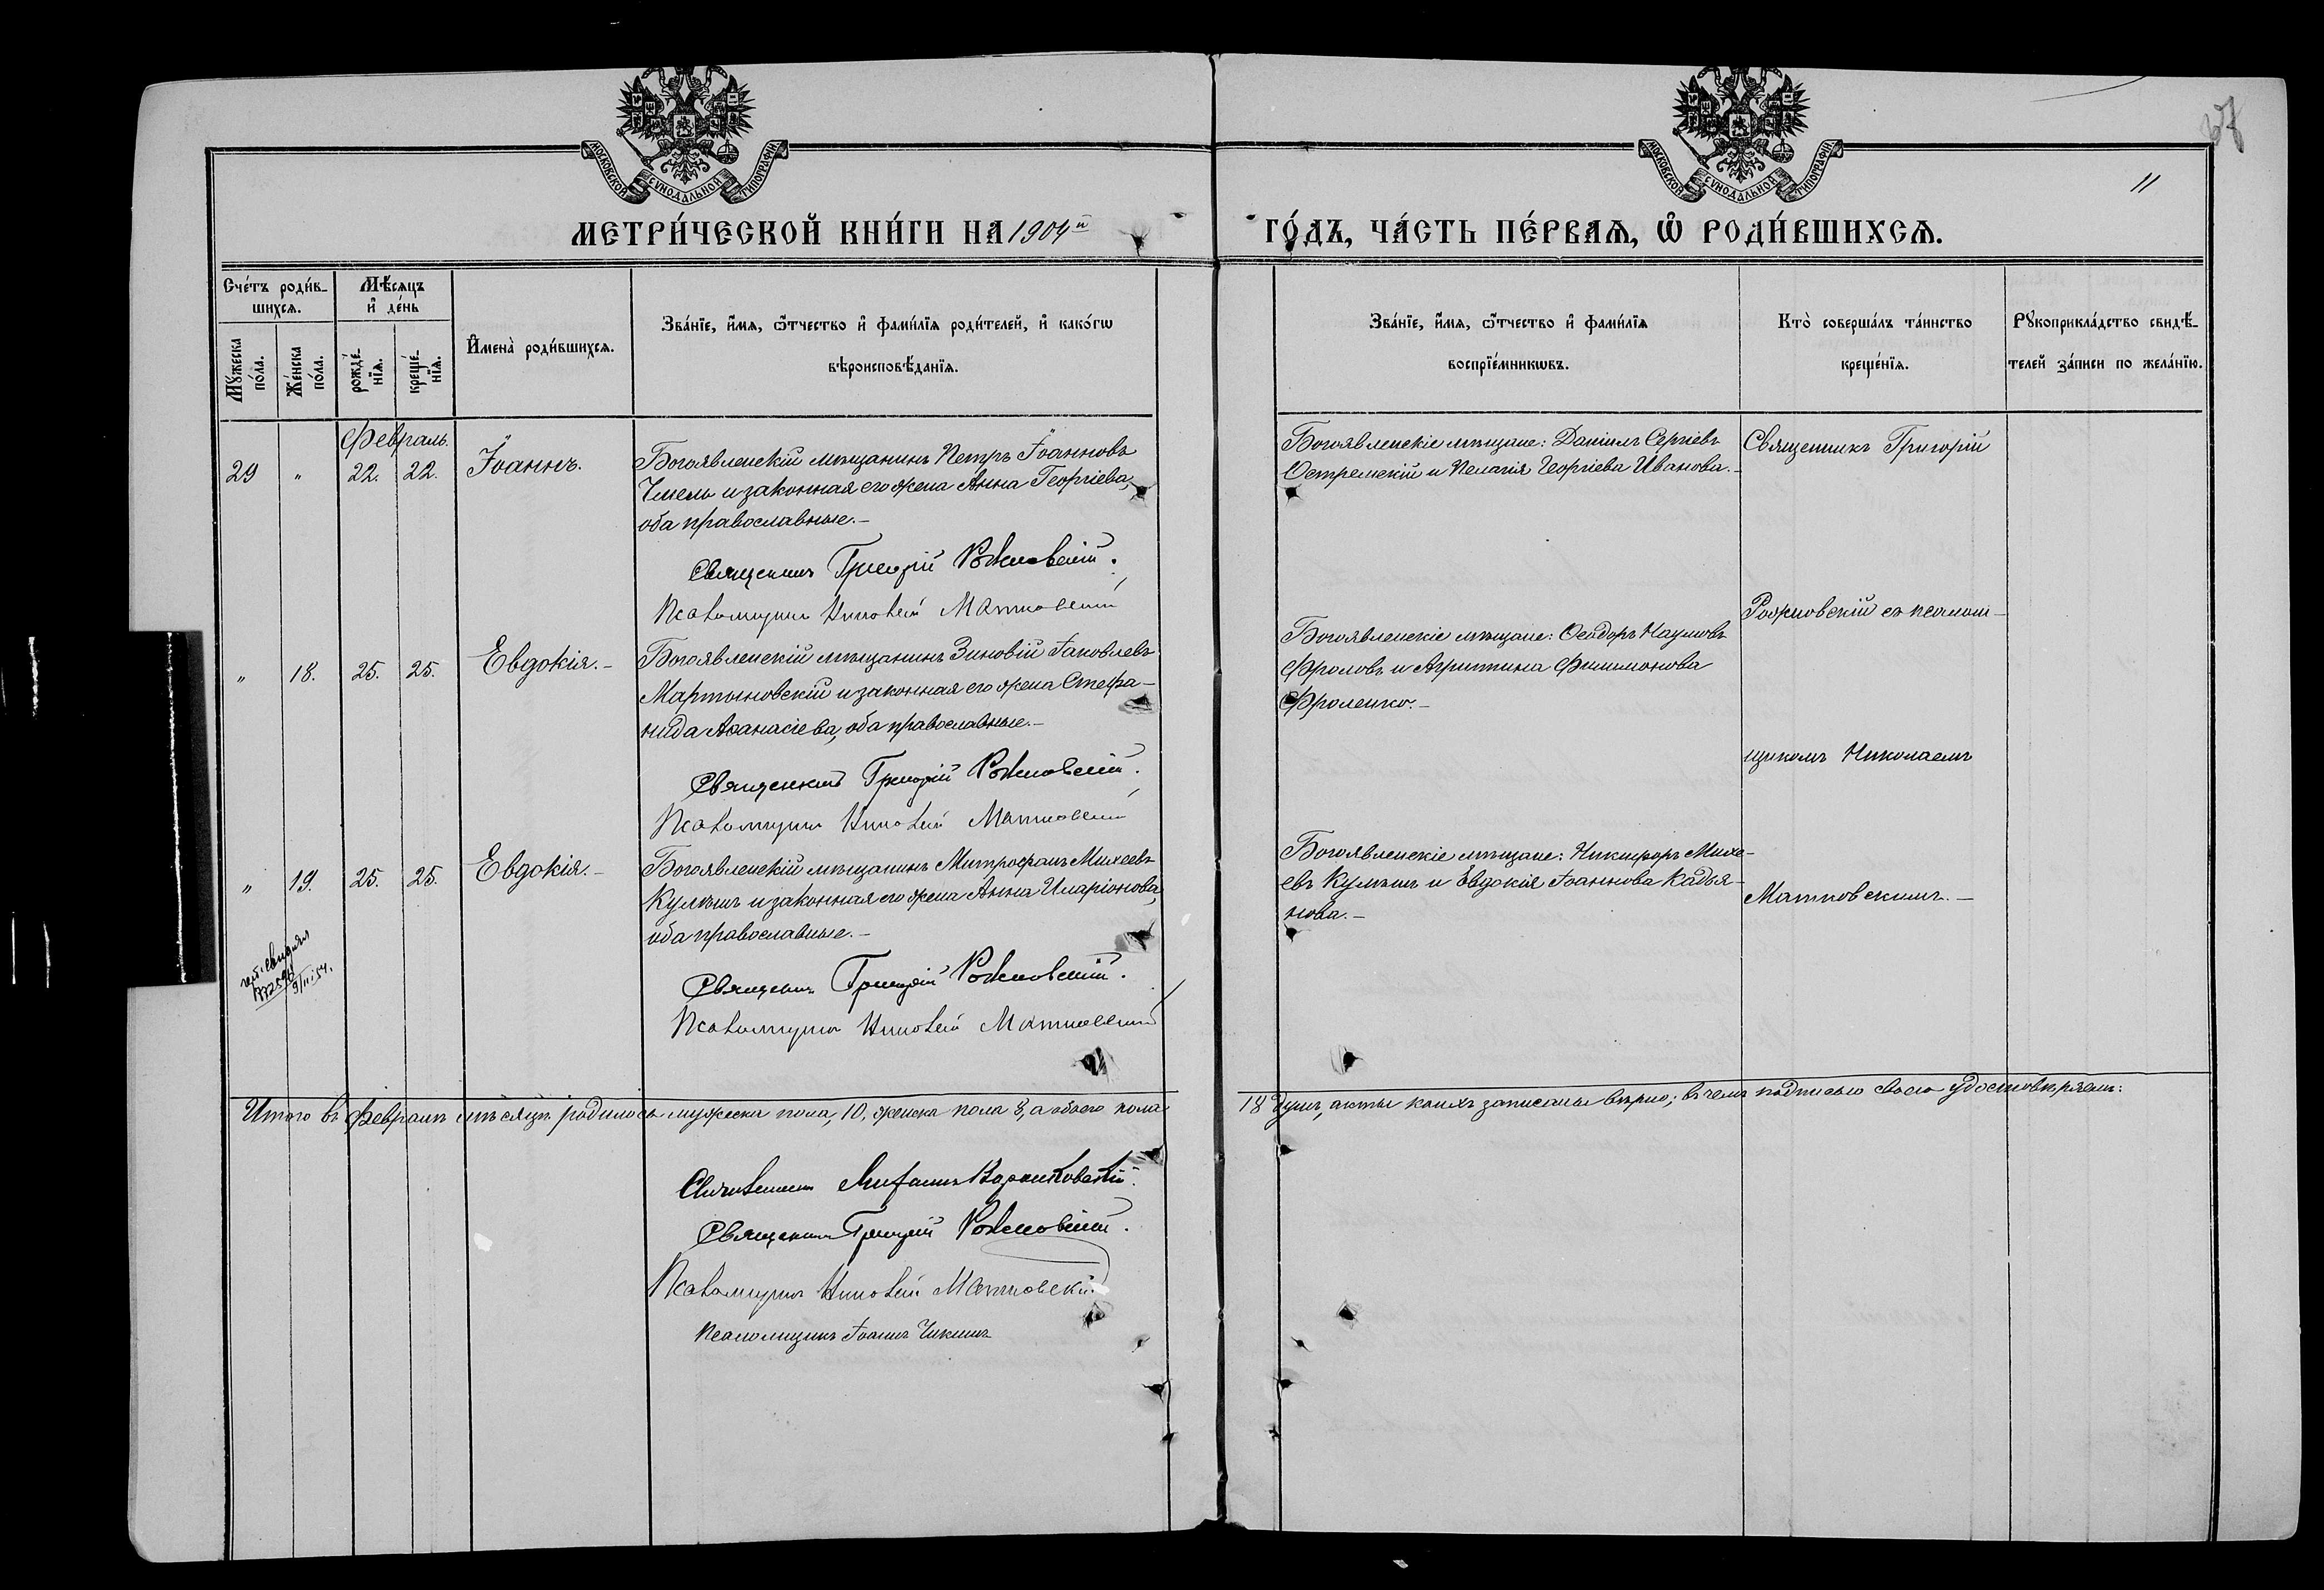 МОСКОВСКОЙ СѴНОДАЛЬНОЙ ТИПОГРАФІИ
МОСКОВСКОЙ СѴНОДАЛЬНОЙ ТИПОГРАФІИ
11
МЕТРИ́ЧЕСКОЙ КНИ́ГИ НА 1904й
ГО́ДЪ, ЧА́СТЬ ПЕ́РВАѦ, Ѡ҆ РОДИ́ВШИХСѦ.
Сче́тъ роди́в-
шихсѧ.
Мѣ́сѧцъ
и҆ де́нь
Мꙋ́жеска по́ла.
Же́нска по́ла.
рожде́-нїѧ.
креще́-нїѧ.
И҆мена̀ роди́вшихсѧ.
Зва́нїе, и҆́мѧ, ѻ҆́тчество и҆ фами́лїѧ роди́телей, и҆ како́гѡ
вѣроисповѣ́данїѧ.
Зва́нїе, и҆́мѧ, ѻ҆́тчество и҆ фами́лїѧ
воспрїе́мникѡвъ.
Кто̀ соверша́лъ та́инство
креще́нїѧ.
Рꙋкоприкла́дство свидѣ́-
телей за́писи по жела́нїю.
Февраль.
29 " 22. 22. Іоаннъ.
Богоявленскій мѣщанинъ Петръ Іоанновъ
Чмель и законная его жена Анна Георгіева,
оба православные.-
Священникъ Григорій Рожновскій.
Псаломщикъ Николай Матковскій
Богоявленскіе мѣщане: Даніилъ Сергіевъ
Остремскій и Пелагія Георгіева Иванова.-
Священникъ Григорій
" 18. 25. 25. Евдокія.-
Богоявленскій мѣщанинъ Зиновій Іаковлевъ
Мартыновскій и законная его жена Стефа-
нида Аѳанасіева, оба православные.-
Священникъ Григорій Рожновскій.
Псаломщикъ Николай Матковскій
Богоявленскіе мѣщане: Ѳеодоръ Наумовъ
Фроловъ и Агриппина Филимонова
Фроленко.-
Рожновскій съ псалом-
щикомъ Николаемъ
" 19. 25. 25. Евдокія.-
Богоявленскій мѣщанинъ Митрофанъ Михеевъ
Кулѣшъ и законная его жена Анна Иларіонова,
оба православные.-
Священникъ Григорій Рожновскій.
Псаломщикъ Николай Матковскій
Богоявленскіе мѣщане: Никифоръ Михе-
евъ Кулѣшъ и Евдокія Іоаннова Кадья-
нова.-
Матковскимъ.-
Итого въ Февралѣ мѣсяцѣ родилось мужеска пола, 10, женска пола 8, а обоего пола
18 душъ, акты коихъ записаны вѣрно; въ чемъ подписью своею удостовѣряемъ:
Священникъ Григорій Рожновскій.
Псаломщикъ Николай Матковскій
Псаломщикъ Іоаннъ Чикинъ